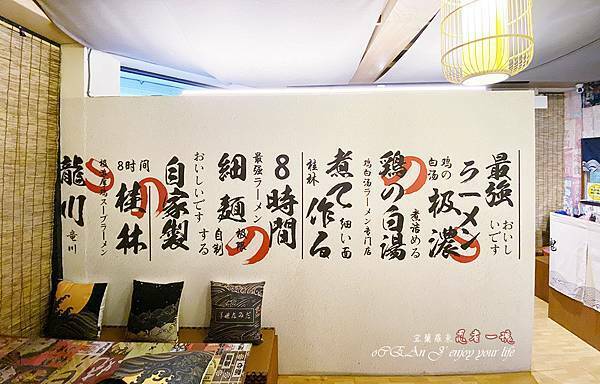 最強
おいしいです
ラーメン
極濃
鶏の白湯
煮詰める
鶏の白湯
鶏白湯ラーメン専門店
煮て作る
細い面
桂林
8時間
最強ラーメン
細麺
極濃
自割
おいしいです
する
自家製
8时间
桂林
龍川
竜川
宜蘭羅東
oCEAn J' enjoy your life